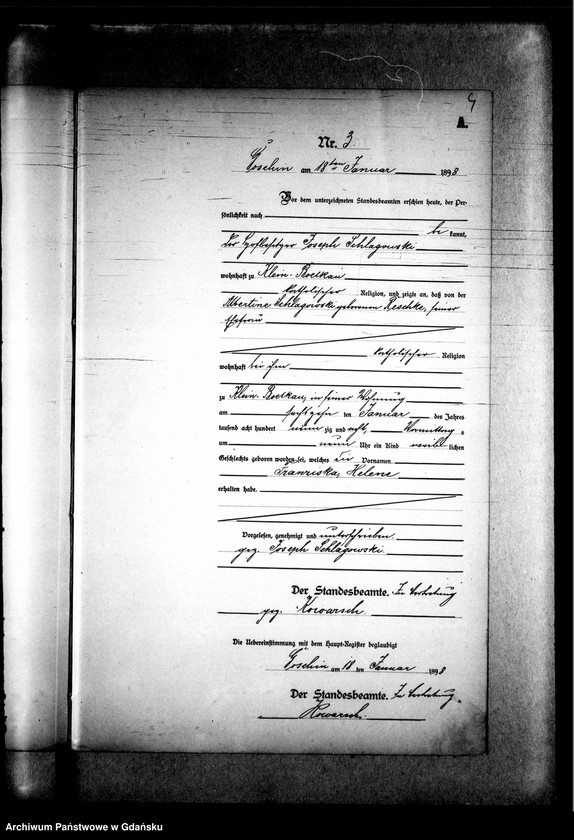 4
A.
Nr. 3
Goschin am 18ten Januar 1898
Vor dem unterzeichneten Standesbeamten erschien heute, der Per-
sönlichkeit nach
be kannt,
der Hofbesitzer Joseph Schlagowski
wohnhaft zu Klein-Boelkau
katholischer Religion, und zeigte an, daß von der
Albertine Schlagowski geborenen Reschke, seiner
Ehefrau
katholischer Religion
wohnhaft bei ihm
zu Klein-Boelkau, in seiner Wohnung
am sechszehn ten Januar des Jahres
tausend acht hundert neun zig und acht, Vormittags
um neun Uhr ein Kind weib lichen
Geschlechts geboren worden sei, welches die Vornamen
Franziska, Helene
erhalten habe.
Vorgelesen, genehmigt und unterschrieben
gez. Joseph Schlagowski.
Der Standesbeamte. In Vertretung
gez. Kowarsch.
Die Uebereinstimmung mit dem Haupt-Register beglaubigt
Goschin am 18 ten Januar 1898
Der Standesbeamte. In Vertretung.
Kowarsch.
Archiwum Państwowe w Gdańsku